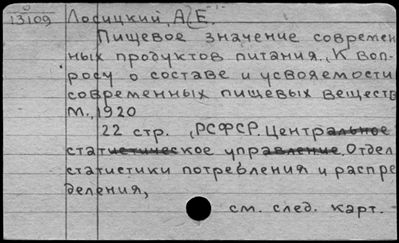 0
13109 Лосицкий, А.Е.
Пищевое значение современ
ных продуктов питания. К воп-
росу о составе и усвояемости
современных пищевых веществ
М., 1920
22 стр. (РСФСР. Центральное
статистическое управление. Отдел
статистики потребления и распре
деления,
см. след. карт.